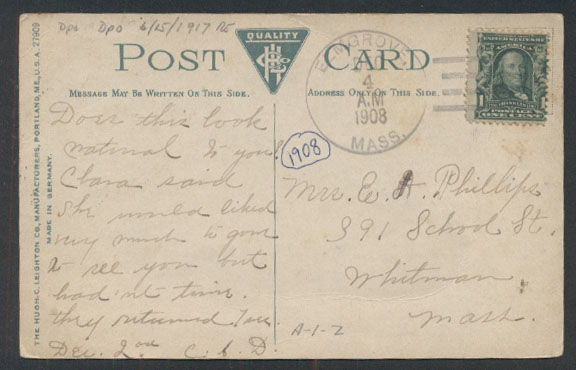 Dpo Dpo 6/15/1917 RE
QUALITY
POST CARD
MESSAGE MAY BE WRITTEN ON THIS SIDE.
ADDRESS ONLY ON THIS SIDE.
THE HUGH C. LEIGHTON CO., MANUFACTURERS, PORTLAND, ME., U.S.A. 27909
MADE IN GERMANY.
ELMGROVE
4
A.M
1908
MASS.
UNITED STATES OF AMERICA
1 1
POSTAGE
ONE CENT
1908
Does this look
natural to you?
Clara said
she would liked
very much to gone
to see you but
had n't time.
they returned Tues.
Dec. 2nd C. L. D.
Mrs. E. A. Phillips
391 School St.
Whitman
Mass.
A-1-2